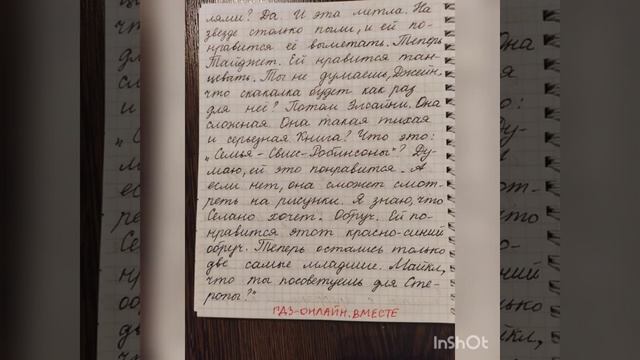 лями? Да. И эта метла. На
звезде столько пыли, и ей по-
нравится её выметать. Теперь
Тайджет. Ей нравится тан-
цевать. Ты не думаешь, Джейн,
что скакалка будет как раз
для неё? Потом Элсайни. Она
сложная. Она такая тихая
и серьезная. Книга? Что это:
„Семья-Свис-Робинсоны"? Ду-
маю, ей это понравится. А
если нет, она сможет смот-
реть на рисунки. Я знаю, что
Селано хочет. Обруч. Ей по-
нравится этот красно-синий
обруч. Теперь остались только
две самые младшие. Майкл,
что ты посоветуешь для Сте-
ропы?"
ГДЗ-ОНЛАЙН.ВМЕСТЕ
InShOt